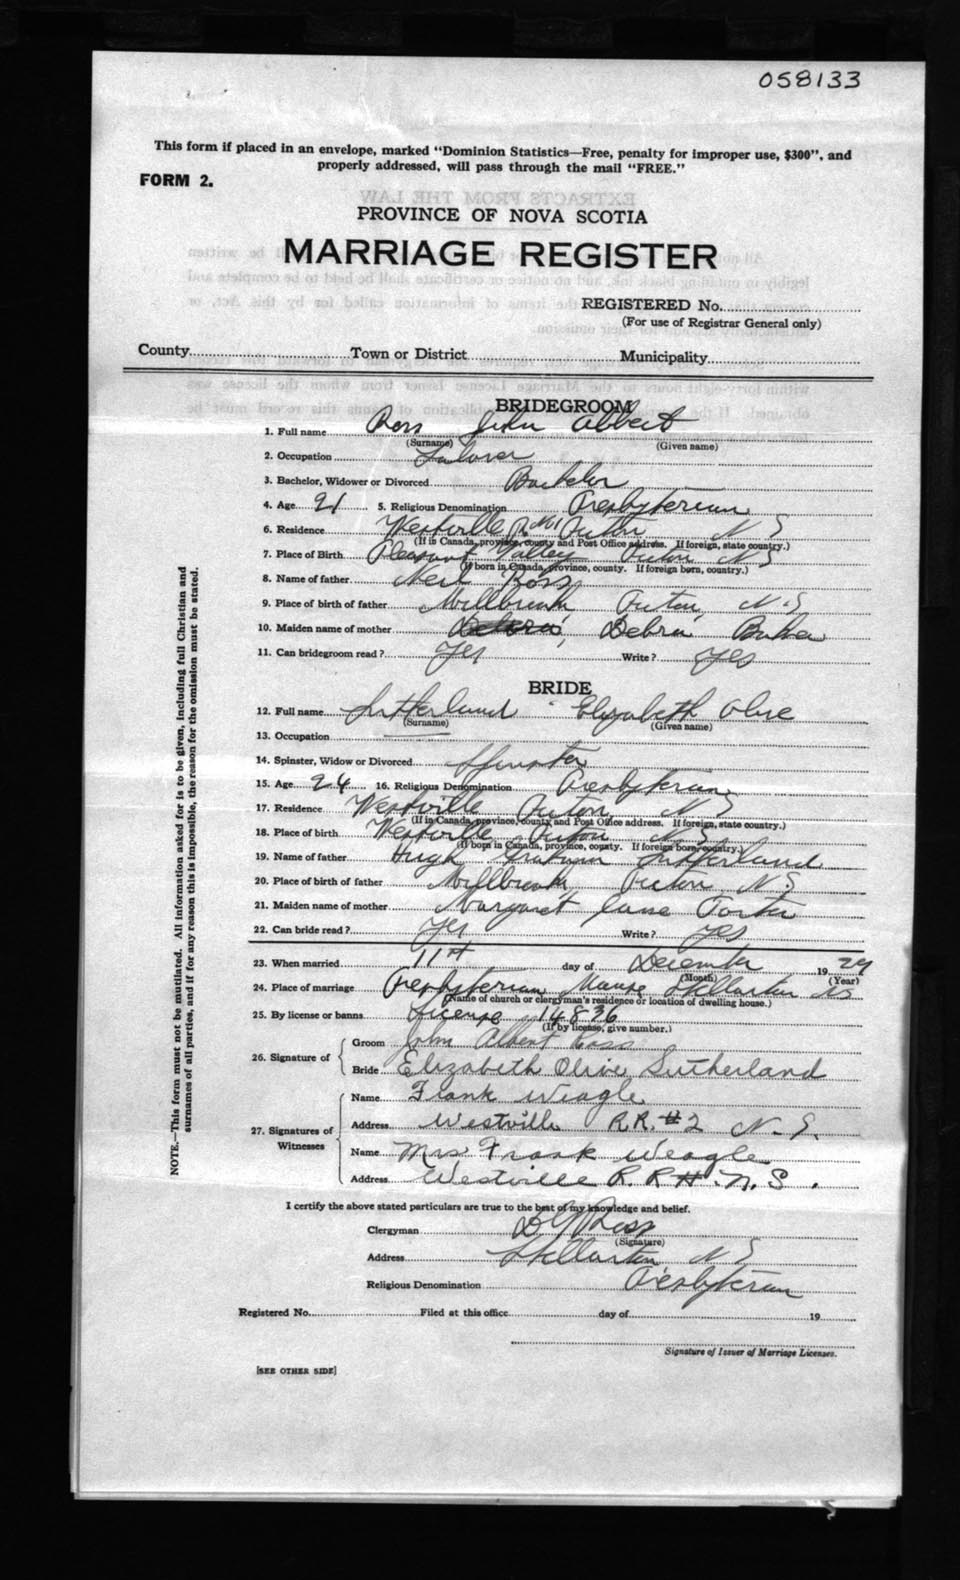 058133
This form if placed in an envelope, marked "Dominion Statistics—Free, penalty for improper use, $300", and
properly addressed, will pass through the mail "FREE."
FORM 2.
PROVINCE OF NOVA SCOTIA
MARRIAGE REGISTER
REGISTERED No.
(For use of Registrar General only)
County Town or District Municipality
BRIDEGROOM
1. Full name Ross John Albert
(Surname) (Given name)
2. Occupation Laborer
3. Bachelor, Widower or Divorced Bachelor
4. Age 21 5. Religious Denomination Presbyterian
6. Residence Westville Pictou N S
(If in Canada, province, county and Post Office address. If foreign, state country.)
7. Place of Birth Pleasant Valley Pictou N S
(If born in Canada, province, county. If foreign born, country.)
8. Name of father Neil Ross
9. Place of birth of father Millbrook Pictou, N.S
10. Maiden name of mother Debra
11. Can bridegroom read? Yes Write? Yes
BRIDE
12. Full name Sutherland Elizabeth Olive
(Surname) (Given name)
13. Occupation
14. Spinster, Widow or Divorced Spinster
15. Age 24 16. Religious Denomination Presbyterian
17. Residence Westville Pictou N S
(If in Canada, province, county and Post Office address. If foreign, state country.)
18. Place of birth Westville Pictou N S
(If born in Canada, province, county. If foreign born, country.)
19. Name of father Hugh Graham Sutherland
20. Place of birth of father Millbrook Pictou N.S.
21. Maiden name of mother Margaret Jane Porter
22. Can bride read? Yes Write? Yes
23. When married 11th day of December 1929
(Month) (Year)
24. Place of marriage Presbyterian Manse Stellarton NS
(Name of church or clergyman's residence or location of dwelling house.)
25. By license or banns License 14836
(If by license, give number.)
26. Signature of
Groom John Albert Ross
Bride Elizabeth Olive Sutherland
27. Signatures of Witnesses
Name Frank Weagle
Address Westville R.R. #2 N.S.
Name Mrs Frank Weagle
Address Westville R. R # N.S.
I certify the above stated particulars are true to the best of my knowledge and belief.
Clergyman Ross
(Signature)
Address Stellarton N S
Religious Denomination Presbyterian
Registered No. Filed at this office day of 19
Signature of Issuer of Marriage Licenses.
[SEE OTHER SIDE]
NOTE.—This form must not be mutilated. All information asked for is to be given, including full Christian and
surnames of all parties, and if for any reason this is impossible, the reason for the omission must be stated.